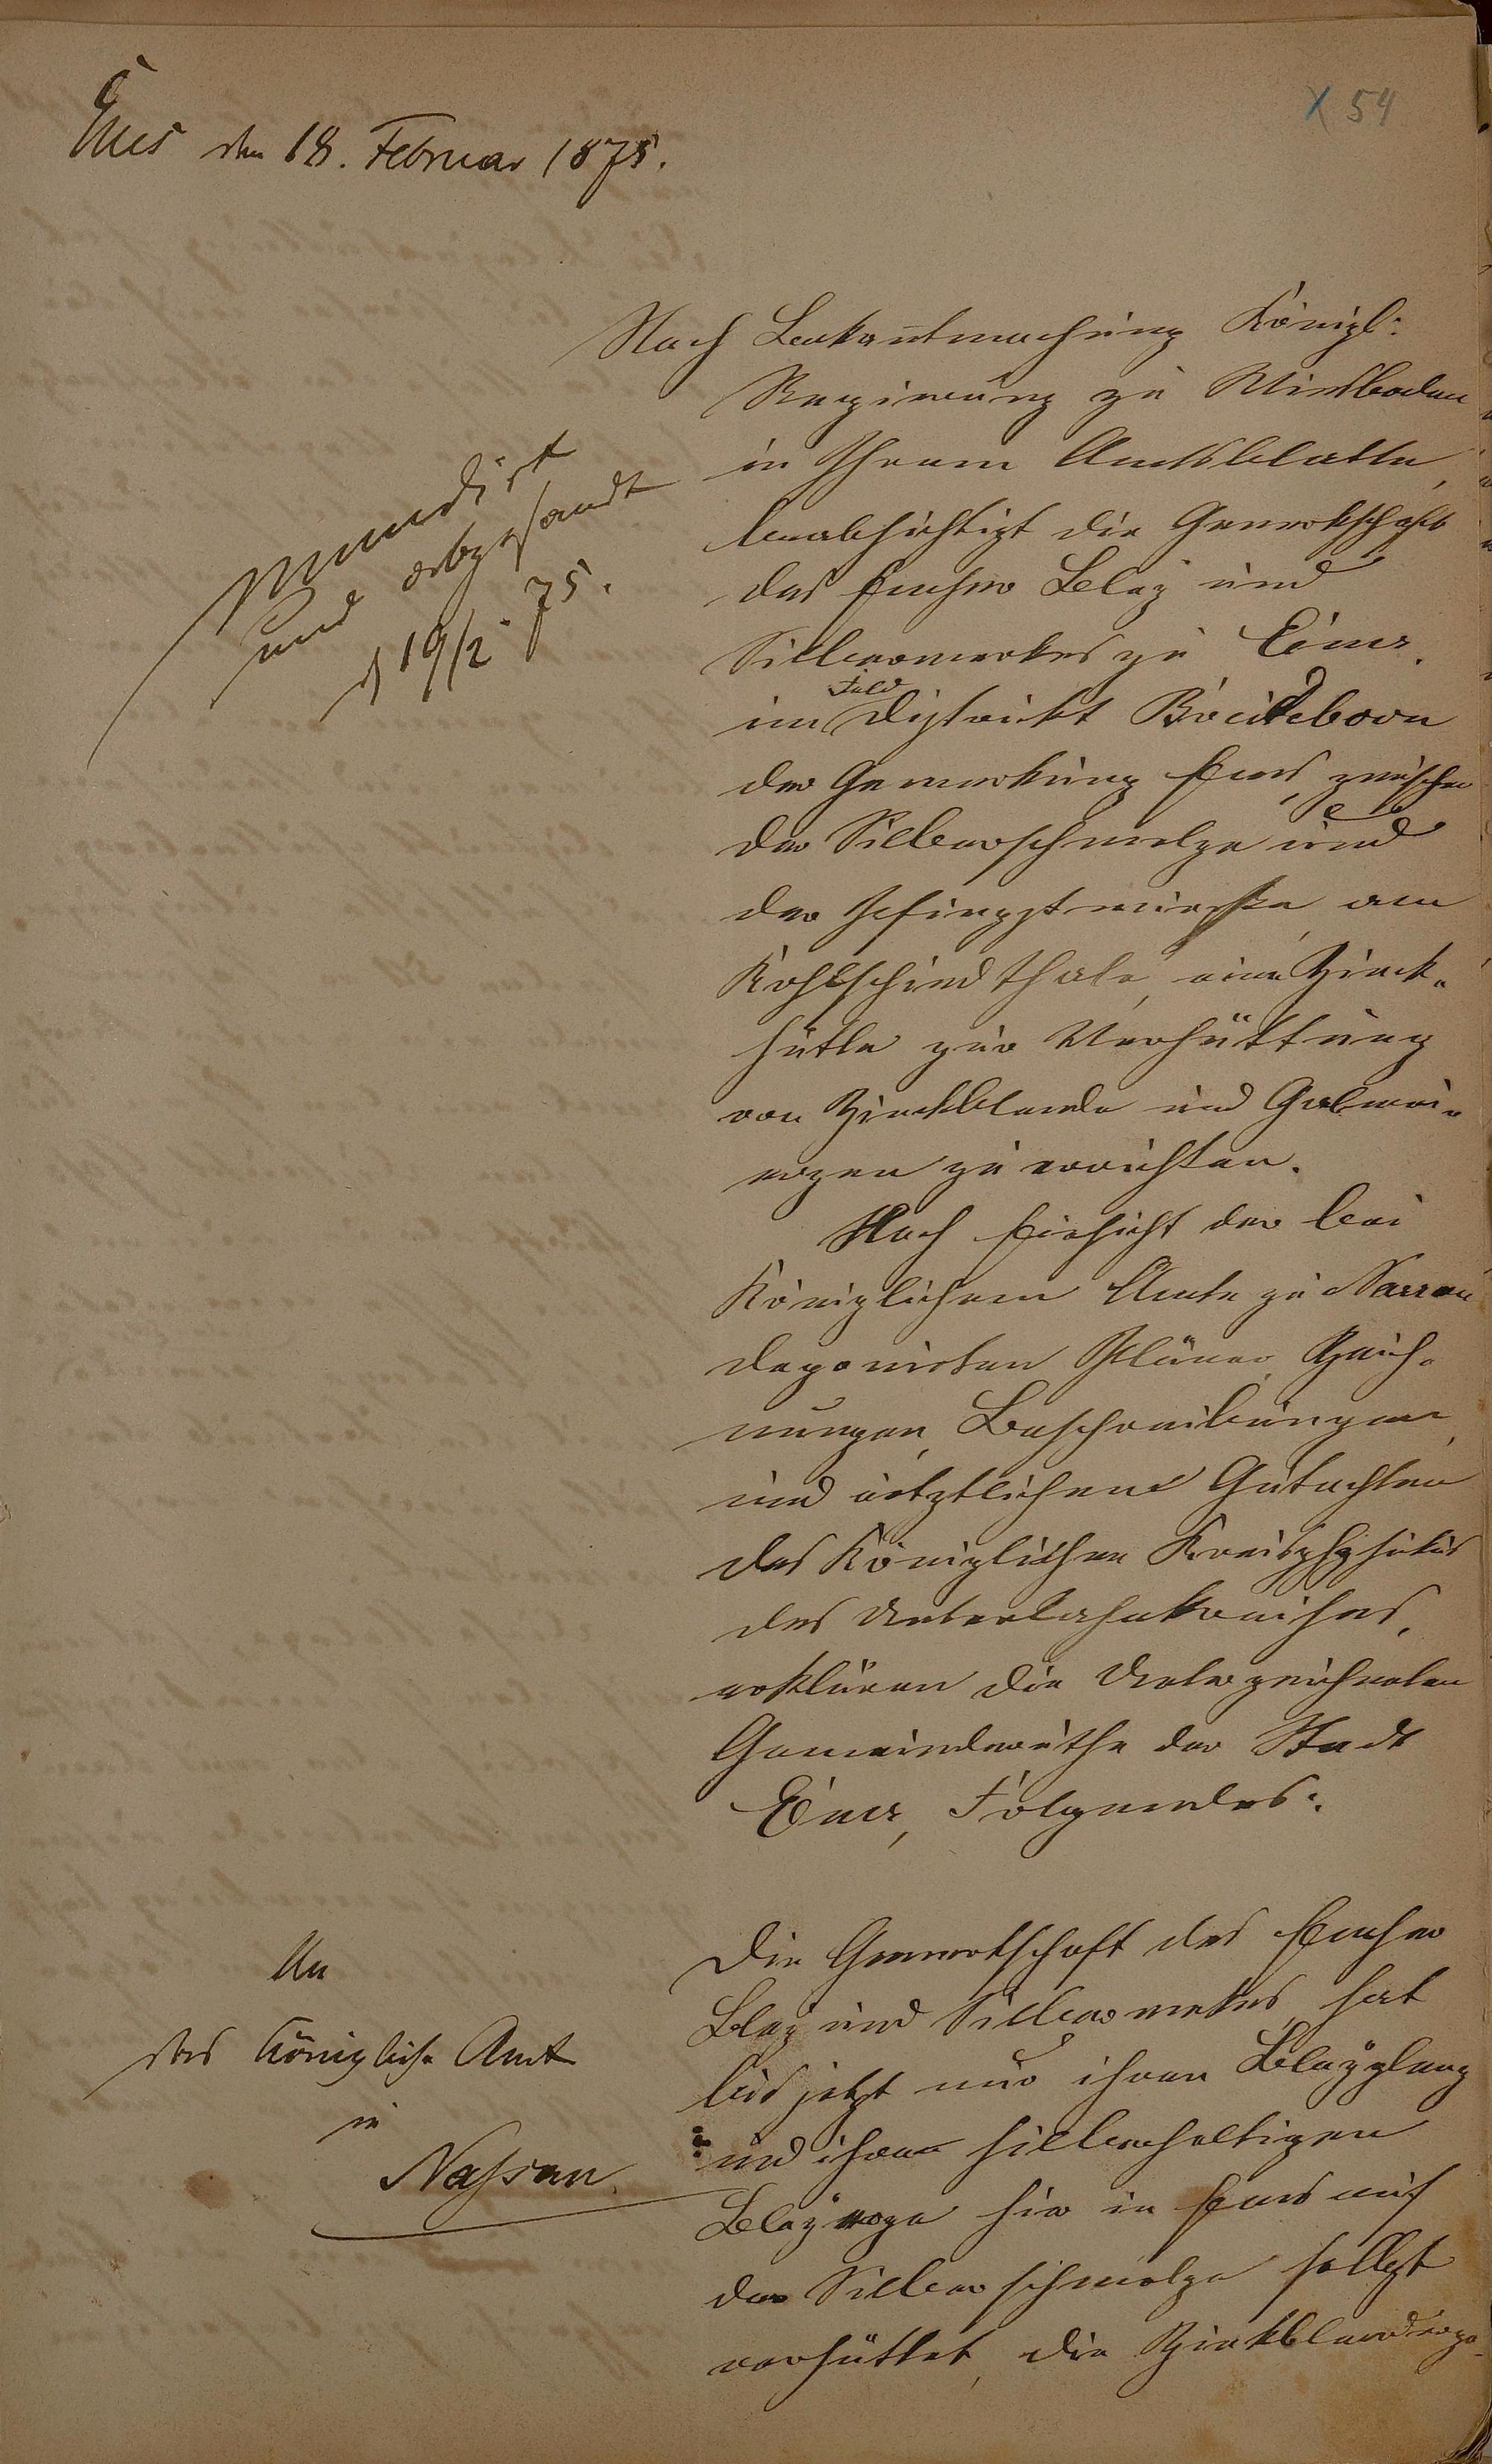 54
Ems den 18. Februar 1875.
Mundirt
und abgesandt
d 19/2. 75.
Nach Bekanntmachung Königl:
Regierung zu Wiesbaden
in Ihrem Amtsblatte,
beabsichtigt die Gewerkschaft
des Emser Bley und
Silberwerkes zu Ems,
im Feld Distrikt
der Gemarkung Ems, zwischen
der Silberschmelze und
der am
eine Zink-
hütte zur Verhüttung
von Zinkblende und Galmei-
erzen zu errichten.
Nach Einsicht der bei
Königlichem Amte zu Nassau
deponirten Pläne, Zeich-
nungen, Beschreibungen,
und ärtztlichem Gutachten
des Königlichen Kreisphysikus
des Unterlahnkreises,
erklären die Unterzeichneten
Gemeinderäthe der Stadt
Ems, Folgendes:
Die Gewerkschaft des Emser
Bley und Silberwerkes, hat
bis jetzt nur ihren Bleyglanz
und ihre silberhaltigen
Bleyerze hier in Ems auf
der Silberschmelze selbst
verhüttet, die Zinkblenderze
An
das Königliche Amt
in
Nassau.